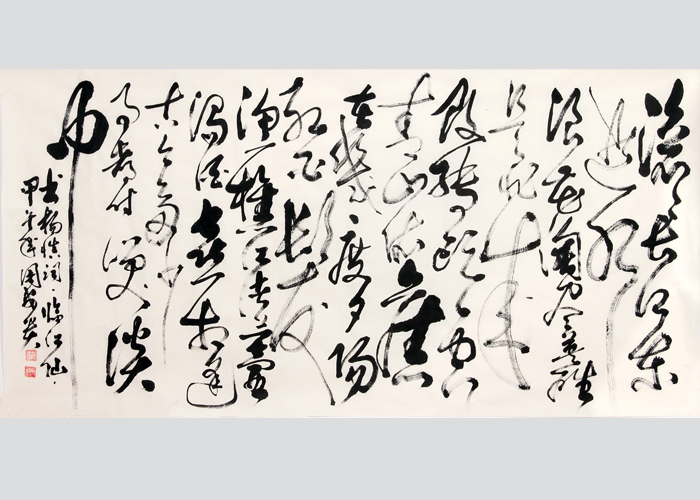 滚滚长江东
逝水
浪花淘尽英雄
是非成
败转头空
青山依旧
在几度夕阳
红白髮
渔樵江渚
浊酒喜相逢
古今多少
事都付笑谈
中
书杨慎词·临江仙·
甲午年